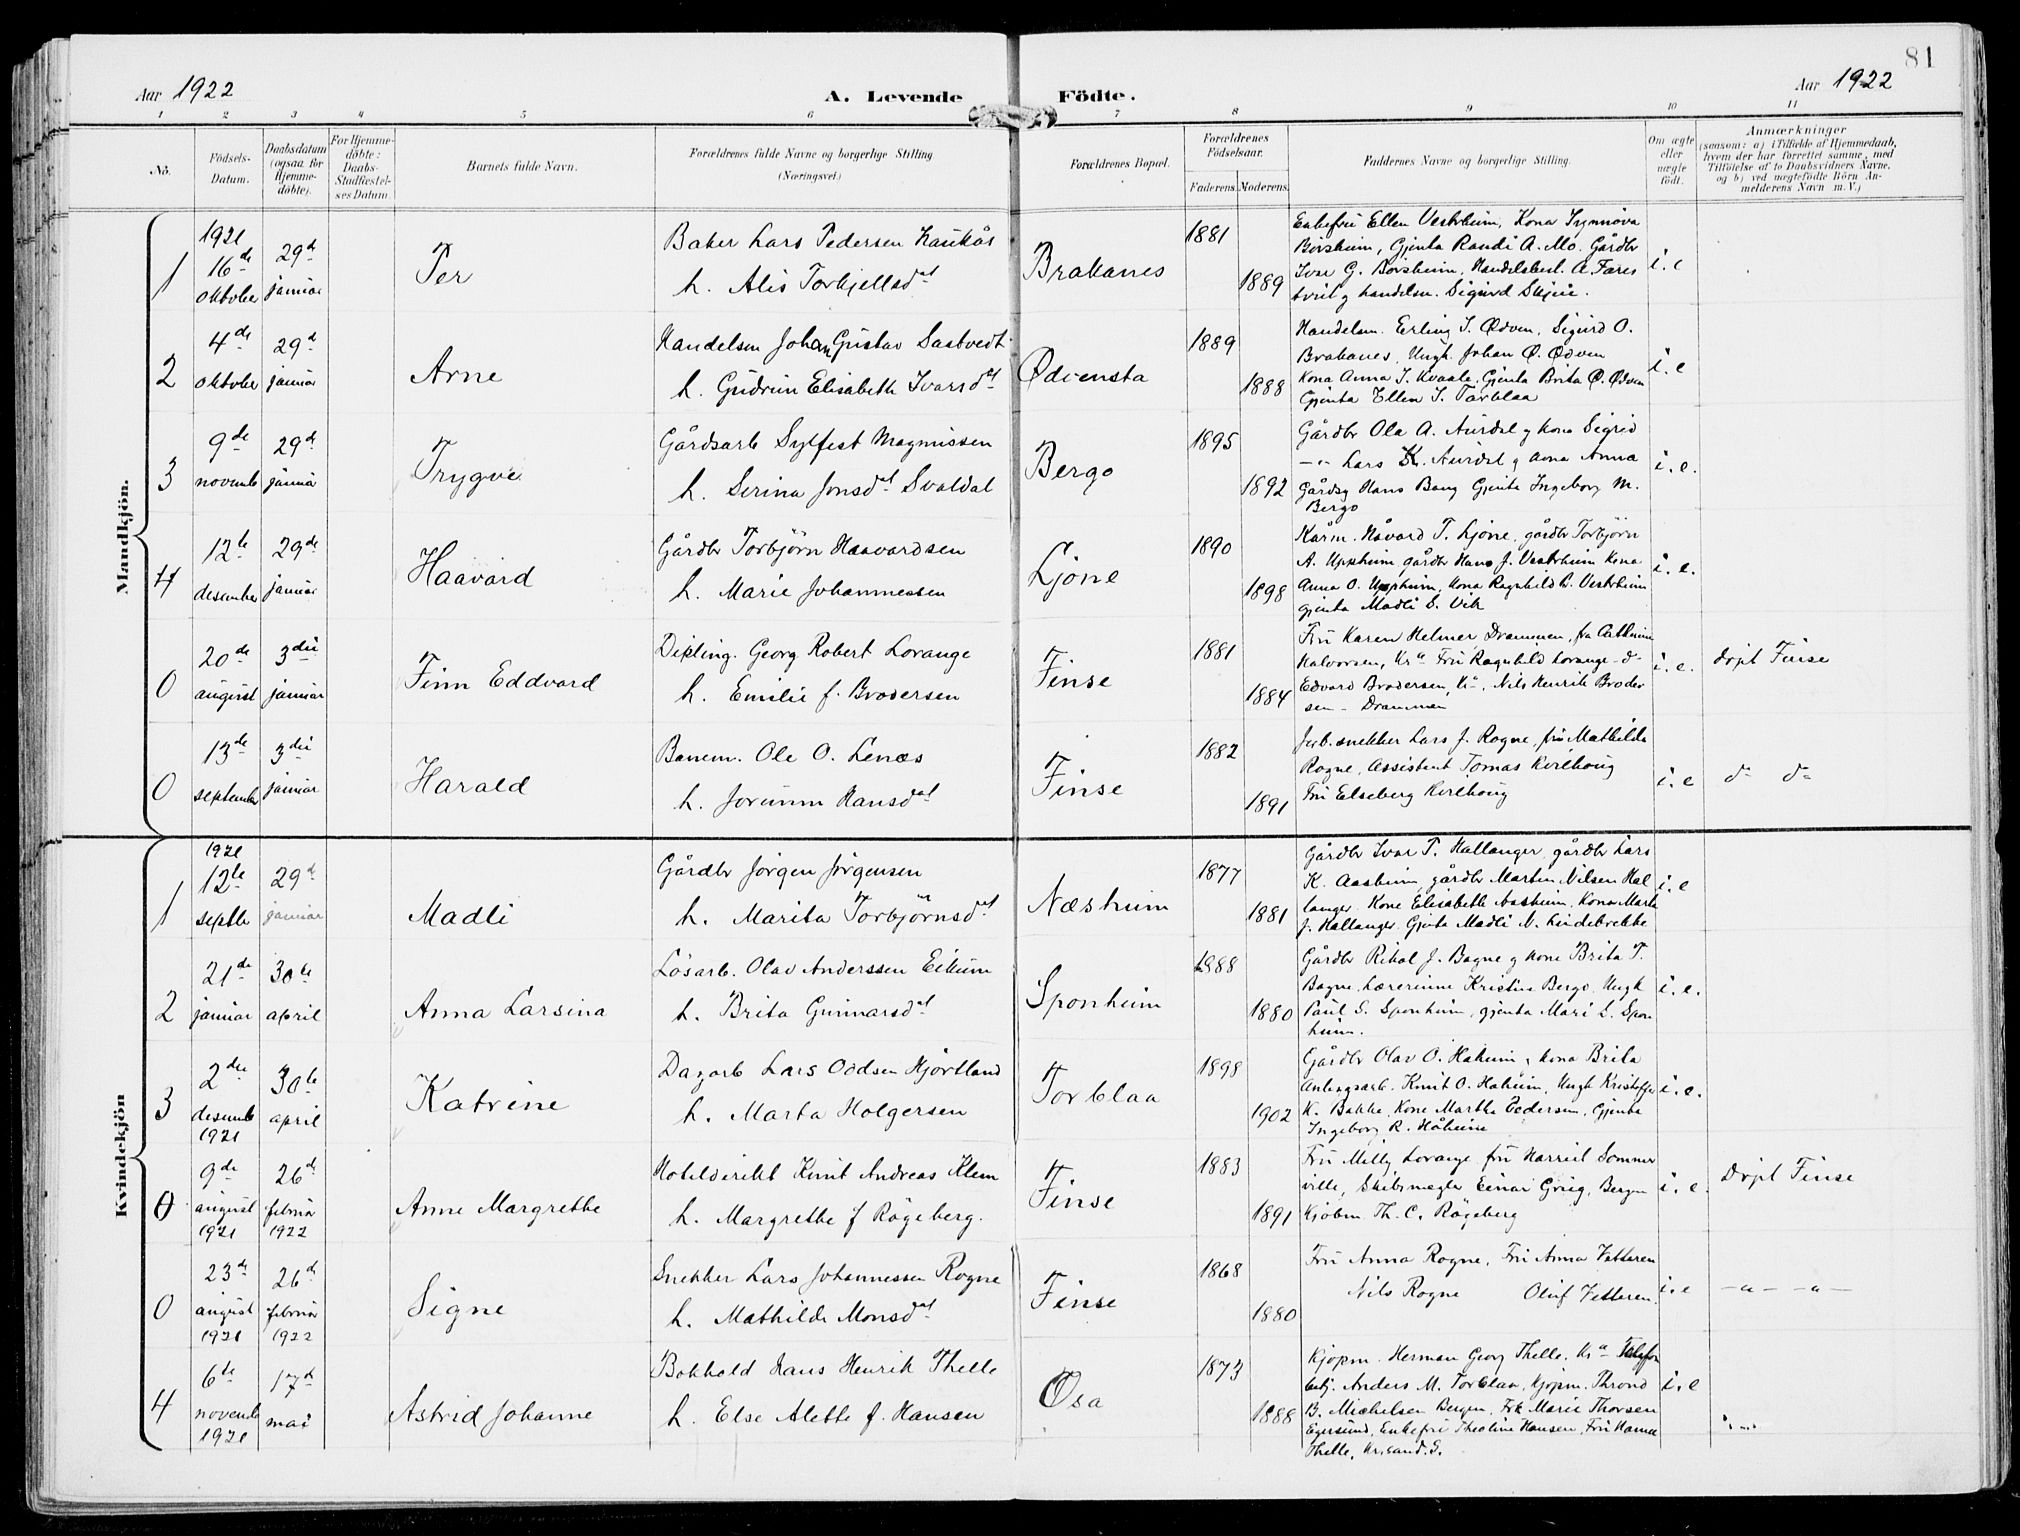 81
Aar 1922
A. Levende Födte.
Aar 1922
1 2 3 4 5 6 7 8 9 10 11
No.
Födsels-Datum.
Daabsdatum (ogsaa for Hjemmedöbte).
For Hjemmedöbte: Daabs-Stadfæstelses Datum.
Barnets fulde Navn.
Forældrenes fulde Navne og borgerlige Stilling
(Næringsvei.)
Forældrenes Bopæl.
Forældrenes Födselsaar.
Faderens. Moderens.
Faddernes Navne og borgerlige Stilling.
Om ægte eller uægte födt.
Anmærkninger
(saasom: a) i Tilfælde af Hjemmedaab,
hvem der har forrettet samme, med
Tilföielse af to Daabsvidners Navne,
og b) ved uægtefödte Börn An-
melderens Navn m. V.)
Mandkjön.
1
1921 16de oktober
29d januar
Per
Baker Lars Pedersen Haukås
h. Alis Torkjellsdat
Brakanes
1881
1889
Enkefru Ellen Vestrheim, Kona Synnøva
Børsheim, Gjenta Randi A. Mo, Gårdbr
Ivar G. Børsheim, Handelsbest. A. Fares
tveit g handelsm. Sigurd Skjeie.
i. e
2
4de oktober
29d januar
Arne
Handelsm Johan Gustav Saxtvedt
h. Gudrun Elisabeth Ivarsdat
Ødvensta
1889
1888
Handelsm. Erling I. Ødven, Sigurd O.
Brakanes, Ungk. Johan O. Ødven
Kona Anna I. Kvaale, Gjenta Brita O. Ødven
Gjenta Ellen I. Torblaa
i. e
3
9de novembr
29d januar
Trygve
Gårdsarb Sylfest Magnussen
h. Serina Jonsdat Svaldal
Bergo
1895
1892
Gårdbr Ola A. Aurdal g kona Sigrid
—"— Lars K. Aurdal g kona Anna
Gårdsg Hans Bang Gjenta Ingeborg M.
Bergo
i. e.
4
12te desember
29de januar
Haavard
Gårdbr Torbjørn Haavardsen
h. Marie Johannessen
Ljøne
1890
1898
Kårm. Håvard T. Ljøne, gårdbr Torbjørn
A. Uppheim gårdbr Hans J. Vestrheim Kona
Anna O. Uppheim, Kona Ragnhild L. Vestrheim
gjenta Madli S. Vik
i. e.
0
20de august
3die januar
Finn Eddvard
Dipling. Georg Robert Lorange
h. Emilie f. Brodersen
Finse
1881
1884
Fru Karen Helmer Drammen, frø Cathrine
Halvorsen, Kra Fru Ragnhild Lorange -do-
Edvard Brodersen, Kra, Nils Henrik Broder
sen - Drammen
i. e.
døpt Finse
0
13de september
3die januar
Harald
Banem. Ole O. Lenæs
h. Jorunn Hansdat
Finse
1882
1891
Jerb.snekker Lars J. Rogne, fru Mathilde
Rogne, Assistent Tomas Kvilhaug
Fru Elseberg Kvilhaug
i. e
do do
Kvindekjön
1
1921 12te septbr
29d januar
Madli
Gårdbr Jørgen Jørgensen
h. Marita Torbjørnsdat
Næsheim
1877
1881
Gårdbr Ivar T. Hallanger, gårdbr Lars
K. Aasheim, gårdbr Martin Nilsen Hal
langer. Kone Elisabeth Aasheim, Kona Marta
J. Hallanger. Gjenta Madli N. Lindebrekke
i. e
2
21de januar
30te april
Anna Larsina
Løsarb. Olav Anderssen Eikum
h. Brita Gunnarsdat
Sponheim
1888
1880
Gårdbr Rikol J. Bagne g kone Brita T.
Bagne. Lærerinne Kristine Bergo, Ungk
Paul S. Sponheim, gjenta Mari L. Spon
heim.
i. e.
3
2den desembr 1921
30te april
Katrine
Dagarb Lars Oddsen Hjørtland
h. Marta Holgersen
Torblaa
1898
1902
Gårdbr Olav O. Håheim g kona Brita
Anlegsarb. Knut O. Håheim, Ungk Kristoffer
K. Bakke. Kone Martha Pedersen, Gjenta
Ingeborg R. Håheim
i. e.
0
9de august 1921
26de februar 1922
Anne Margrethe
Hoteldirekt Knut Andreas Klem
h. Margrethe f Røgeberg.
Finse
1883
1891
Fru Milly Lorange, fru Harriet Sommer
ville, Skibsmægler Einar Grieg, Bergen
Kjøbm. Th. C. Røgeberg
i. e.
Døpt Finse
0
23de august 1921
26de februar 1922
Signe
Snekker Lars Johannessen Rogne
h. Mathilde Monsdat
Finse
1868
1880
Fru Anna Rogne, Fru Anna Vetteren
Nils Rogne Oluf Vetteren.
i. e
—"— —"—
4
6te novembr 1921
17de mai
Astrid Johanne
Bokhold Hans Henrik Thelle
h. Else Alette f. Hansen
Osa
1873
1888
Kjøpm. Herman Georg Thelle, Kra Telefon
betj. Anders M. Torblaa, Kjøpm. Thrond
B. Michelsen Bergen, Frk Marie Thorsen
Egersund, Enkefru Theoline Hansen, Fru Hanna
Thelle, Kr.sand. S.
i. e